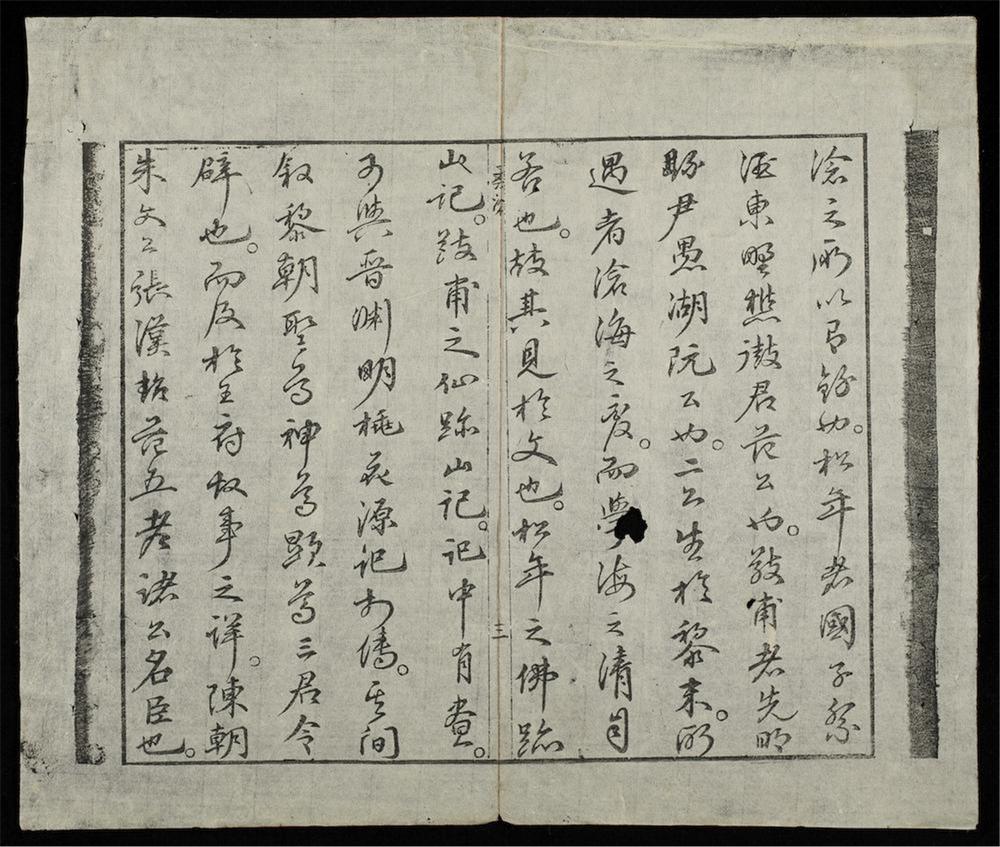 滄之所以有錄也。松年者國子祭
酒東野樵君范公也。敬甫者先明
縣尹愚湖阮公也。二公生於黎末。所
遇者滄海之変。而學海之清自
若也。故其見於文也。松年之佛跡
山記。敬甫之仙跡山記。記中有畫。
可與晉淵明桃花源記並傳。其间
叙黎朝聖尊神尊顕尊三君令
辟也。而及於王府故事之詳。陳朝
朱文公張漢超范五老諸公名臣也。
三